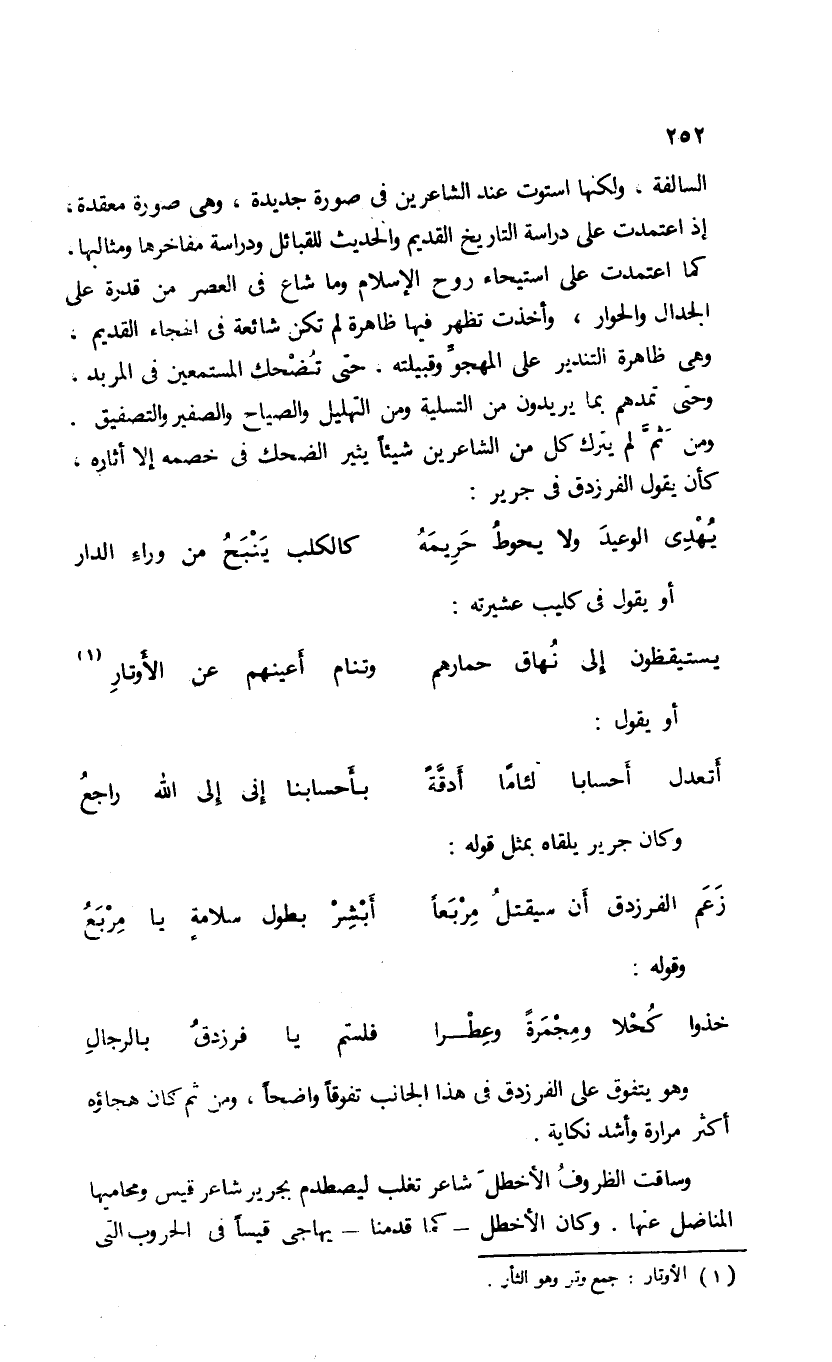 ٢٥٢
السالفة ، ولكنها استوت عند الشاعرين فى صورة جديدة ، وهى صورة معقدة ،
إذ اعتمدت على دراسة التاريخ القديم والحديث للقبائل ودراسة مفاخرها ومثالبها .
كما اعتمدت على استيحاء روح الإسلام وما شاع فى العصر من قدرة على
الجدال والحوار ، وأخذت تظهر فيها ظاهرة لم تكن شائعة فى الهجاء القديم ،
وهى ظاهرة التندير على المهجوِّ وقبيلته . حتى تُضْحك المستمعين فى المربد .
وحتى تمدهم بما يريدون من التسلية ومن التهليل والصياح والصفير والتصفيق .
ومن ثَمَّ لم يترك كل من الشاعرين شيئاً يثير الضحك فى خصمه إلا أثاره ،
كأن يقول الفرزدق فى جرير :
يُهْدِى الوعيدَ ولا يحوطُ حَرِيمَهُ كالكلب يَنْبَحُ من وراءِ الدار
أو يقول فى كليب عشيرته :
يستيقظون إلى نُهاق حمارهم وتنام أَعينهم عن الأَوتارِ (١)
أو يقول :
أَتعدل أحسابا لئامًا أَدقَّةً بأَحسابنا إنى إلى الله راجعُ
وكان جرير يلقاه بمثل قوله :
زَعَم الفرزدق أَن سيقتلُ مِرْبَعاً أَبْشِرْ بطول سلامةٍ يا مِرْبَعُ
وقوله :
خذوا كُحْلا ومِجْمَرةً وعِطْرا فلستم يا فرزدقُ بالرجالِ
وهو يتفوق على الفرزدق فى هذا الجانب تفوقاً واضحاً ، ومن ثم كان هجاؤه
أكثر مرارة وأشد نكاية .
وساقت الظروفُ الأخطلَ شاعر تغلب ليصطدم بجرير شاعر قيس ومحاميها
المناضل عنها . وكان الأخطل – كما قدمنا – يهاجى قيساً فى الحروب التى
(١) الأوتار : جمع وتر وهو الثأر .